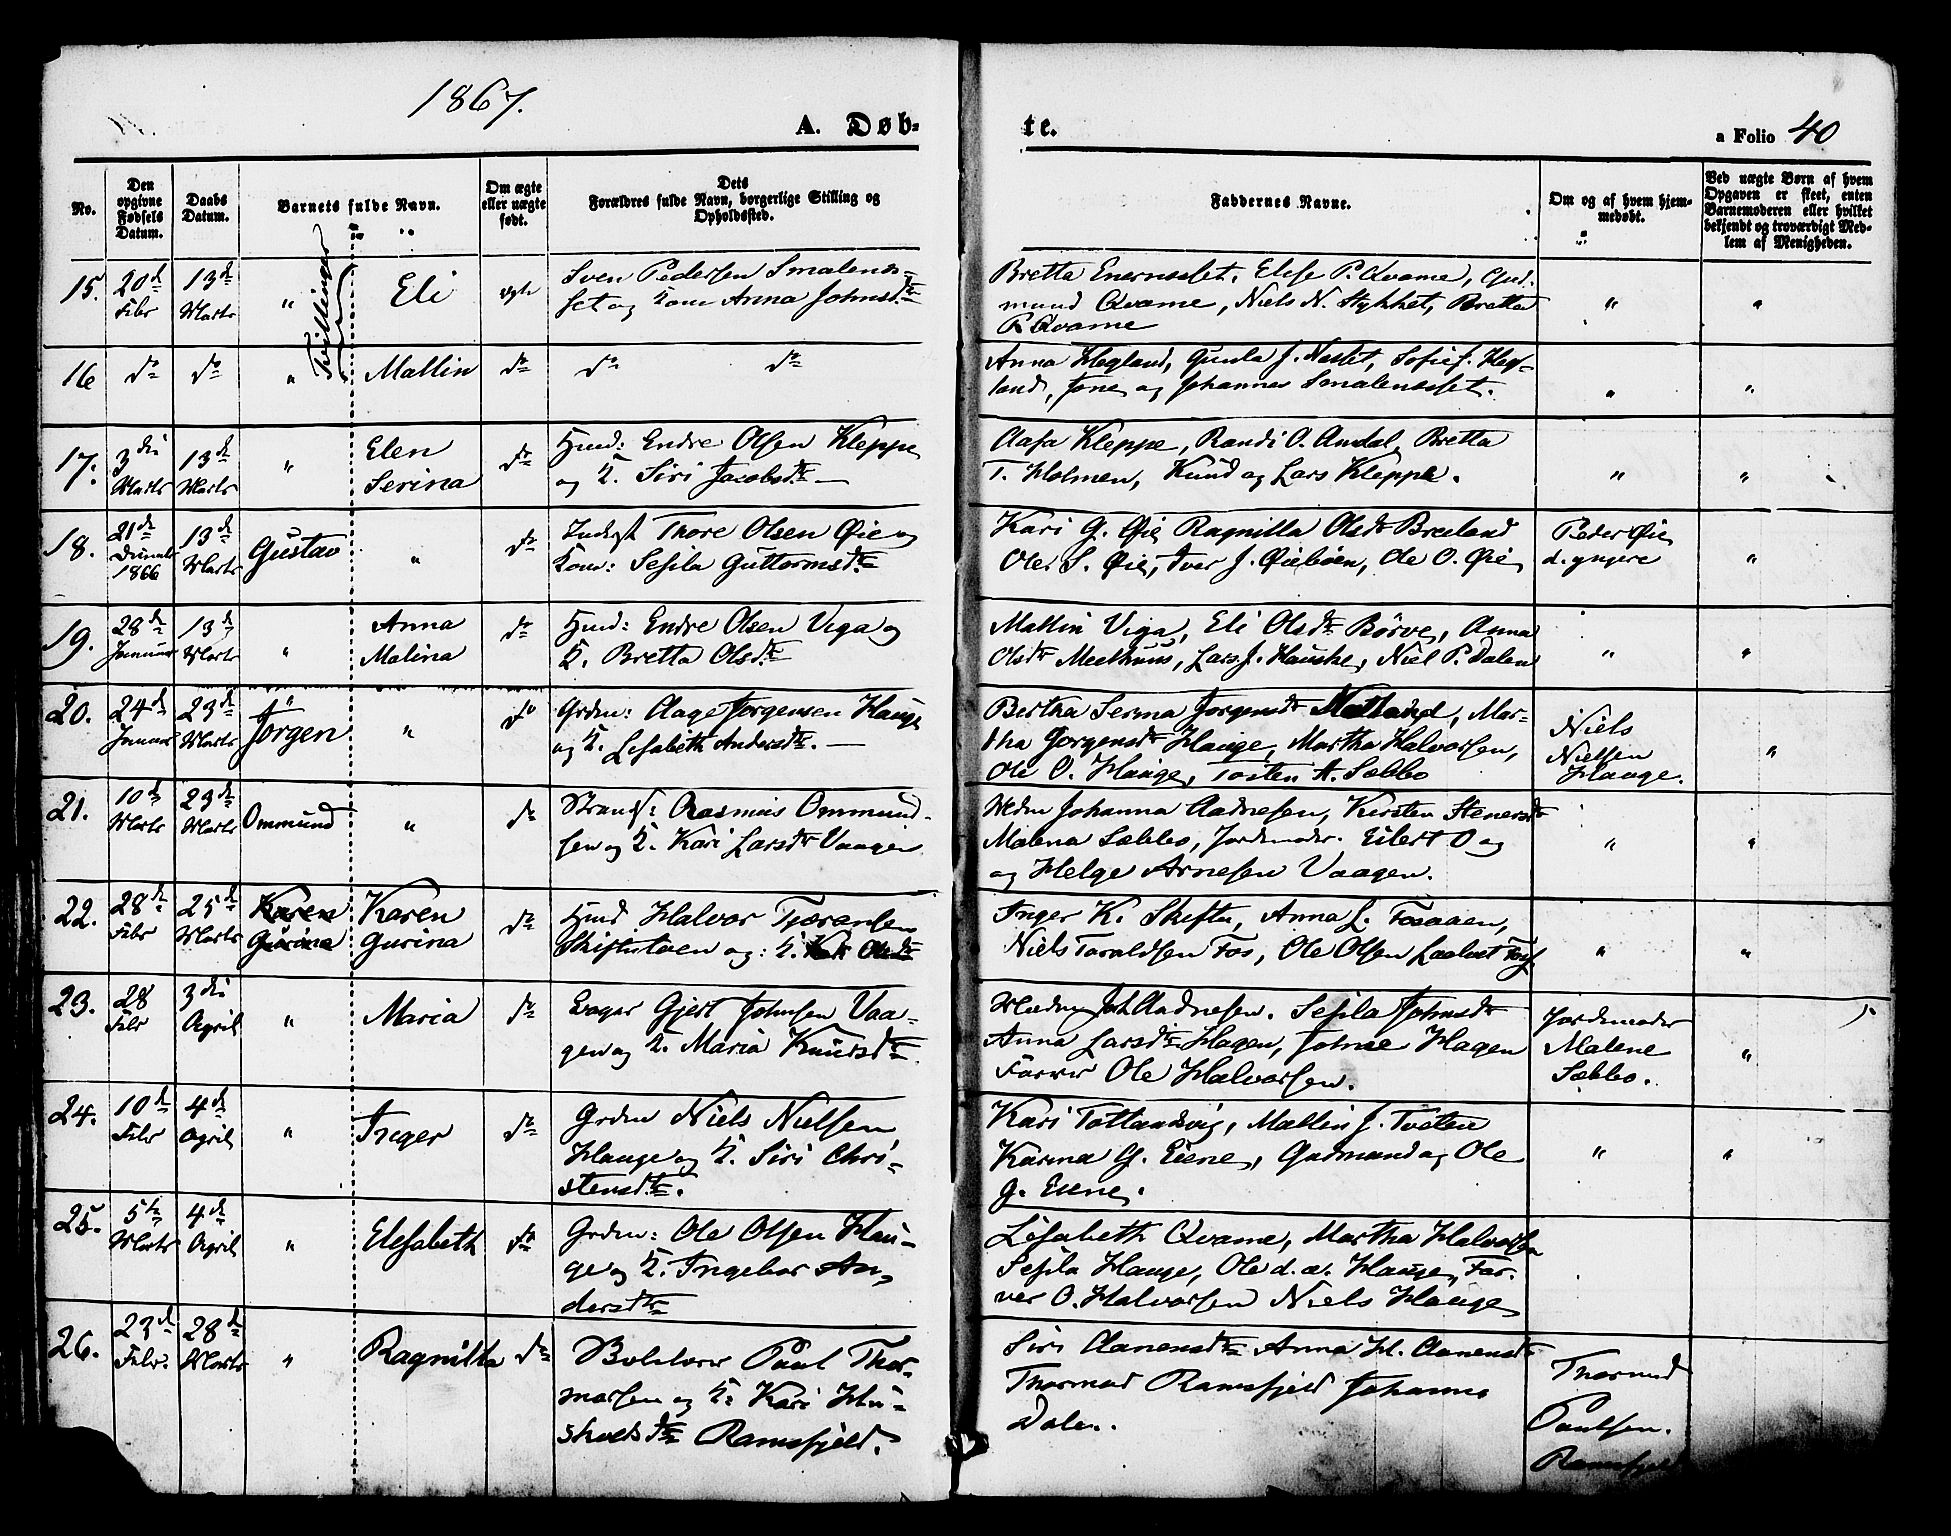 1867.
A. Døb-
te.
a Folio 40
No.
Den
opgivne
Fødsels
Datum.
Daabs
Datum.
Barnets fulde Navn.
Om ægte
eller uægte
født.
Dets
Forældres fulde Navn, borgerlige Stilling og
Opholdssted.
Faddernes Navne.
Om og af hvem hjem-
medøbt.
Ved uægte Børn af hvem
Opgaven er skeet, enten
Barnemoderen eller hvilket
bekjendt og troværdigt Med-
lem af Menigheden.
Tvillinger
15. 20d Febr 13d Marts " Eli ægte
Sven Pedersen Smalenes-
set og Kone Anna Johnsdtr
Bretta Enernesset, Elese P. Qvame, Gud-
mund Qvame, Niels N. Stykket, Bretta
P. Qvame
" "
16 do do " Mallin do do do
Anna Hegland, Gunla J. Neset, Sofie J. Heg-
land, Jone og Johannes Smalenesset.
" "
17. 3die Marts 13d Marts " Elen
Serina do
Hmd: Endre Olsen Kleppe
og K. Siri Jacobsdtr —
Aasa Kleppe, Randi O. Amdal, Bretta
T. Holmen, Knud og Lars Kleppe.
" "
18. 21d
1866 13d Marts Gustav " do
Inderst Thore Olsen Øie og
Kone: Sesila Guttormsdtr
Kari G. Øie Ragnilla Olsdtr Breeland
Oles S. Øie, Iver J. Øiebøen, Ole O. Øie
Peder Øie
d. yngere
"
19. 28d Januar 13d Marts " Anna
Malina do
Hmd: Endre Olsen Vega og
K. Bretta Olsdtr
Mallin Viga, Eli Olsdtr Børve, Anna
Olsdtr Meethuus, Lars J. Hauske, Niel P. Dalen
" "
20. 24d Januar 23d Marts Jørgen " do
Grdm: Aage Jørgensen Hauge
og K. Lisabeth Andersdtr. —
Bertha Serina Jørgensdtr Natland, Mar-
tha Jorgensdtr Hauge, Martha Halvorsen,
Ole O. Hauge, Tosten A. Sæbbø
Niels
Nielsen
Hauge.
"
21. 10d Marts 23d Marts Ommund " do
Strands: Rasmus Ommund-
sen og K. Kari Larsdtr Vaagen
Mdm Johanna Aadnesen, Kirsten Stenersdtr
Malena Sæbbø, Jordemoder. Eilert O og
og Helge Arnesen Vaagen.
" "
22. 28d Febr 25d Marts Karen
Gurina Karen
Gurina do
Hmd Halvor Tjøransen
Skiftestøen og: K. Olsdtr
Inger K. Skifte, Anna L. Fosaaen,
Niels Taraldsen Fos, Ole Olsen
" "
23. 28 Febr 3die April " Maria do
Gjert Johnsen Vaa-
gen og K. Maria Knudsdtr
Madm Joh Aadnesen. Sesila Johnsdtr
Anna Larsdtr Hagen, Johne Hagen
Farver Ole Halvorsen.
Jordemoder
Malene
Sæbbø.
"
24. 10d Febr 4d April " Inger do
Grdm Niels Nielsen
Hauge og K. Siri Chri-
stensdtr.
Kari Totlandsvig, Mallin J. Tveten
Karina G. Eiene, Gudmund og Ole
G. Eiene.
" "
25. 5te Marts 4d April " Elesabeth do
Grdm: Ole Olsen Hau-
ge og K. Ingebor An-
dersdtr
Lisabeth Qvame, Martha Halvorsen
Sesila Hauge, Ole d. æ. Hauge, Far-
ver O. Halvorsen Niels Hauge
26. 23d Febr. 28d Marts " Ragnilla do
Paul Thor-
morsen og K. Kari Hu-
skoldsdtr Ramsfjeld.
Siri Aanensdtr Anna H. Aanensdtr
Thormod Ramsfjeld Johannes
Dalen.
Thormod
Paulsen.
Ramsfjeld